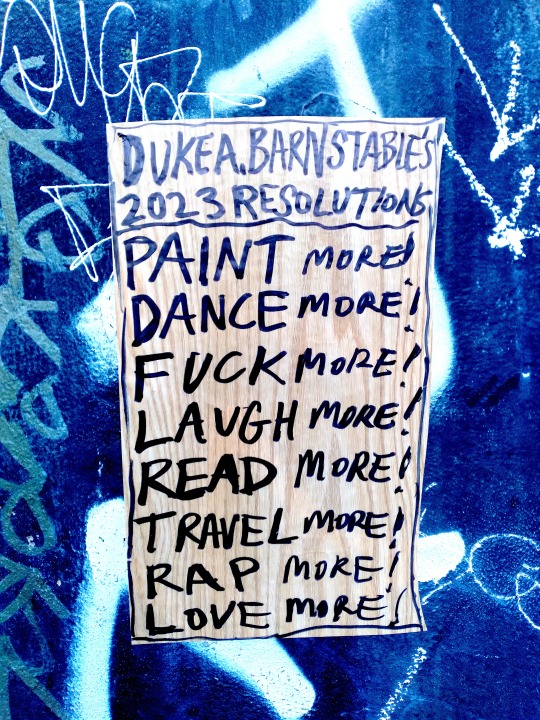 DUKE A. BARNSTABLE'S
2023 RESOLUTIONS
PAINT MORE!
DANCE MORE!
FUCK MORE!
LAUGH MORE!
READ MORE!
TRAVEL MORE!
RAP MORE!
LOVE MORE!